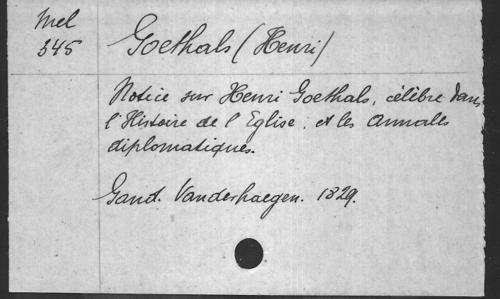 Mel
345
Goethals (Henri)
Notice sur Henri Goethals, célèbre dans
l'Histoire de l'Eglise, et les Annales
diplomatiques.
Gand. Vanderhaegen. 1829.